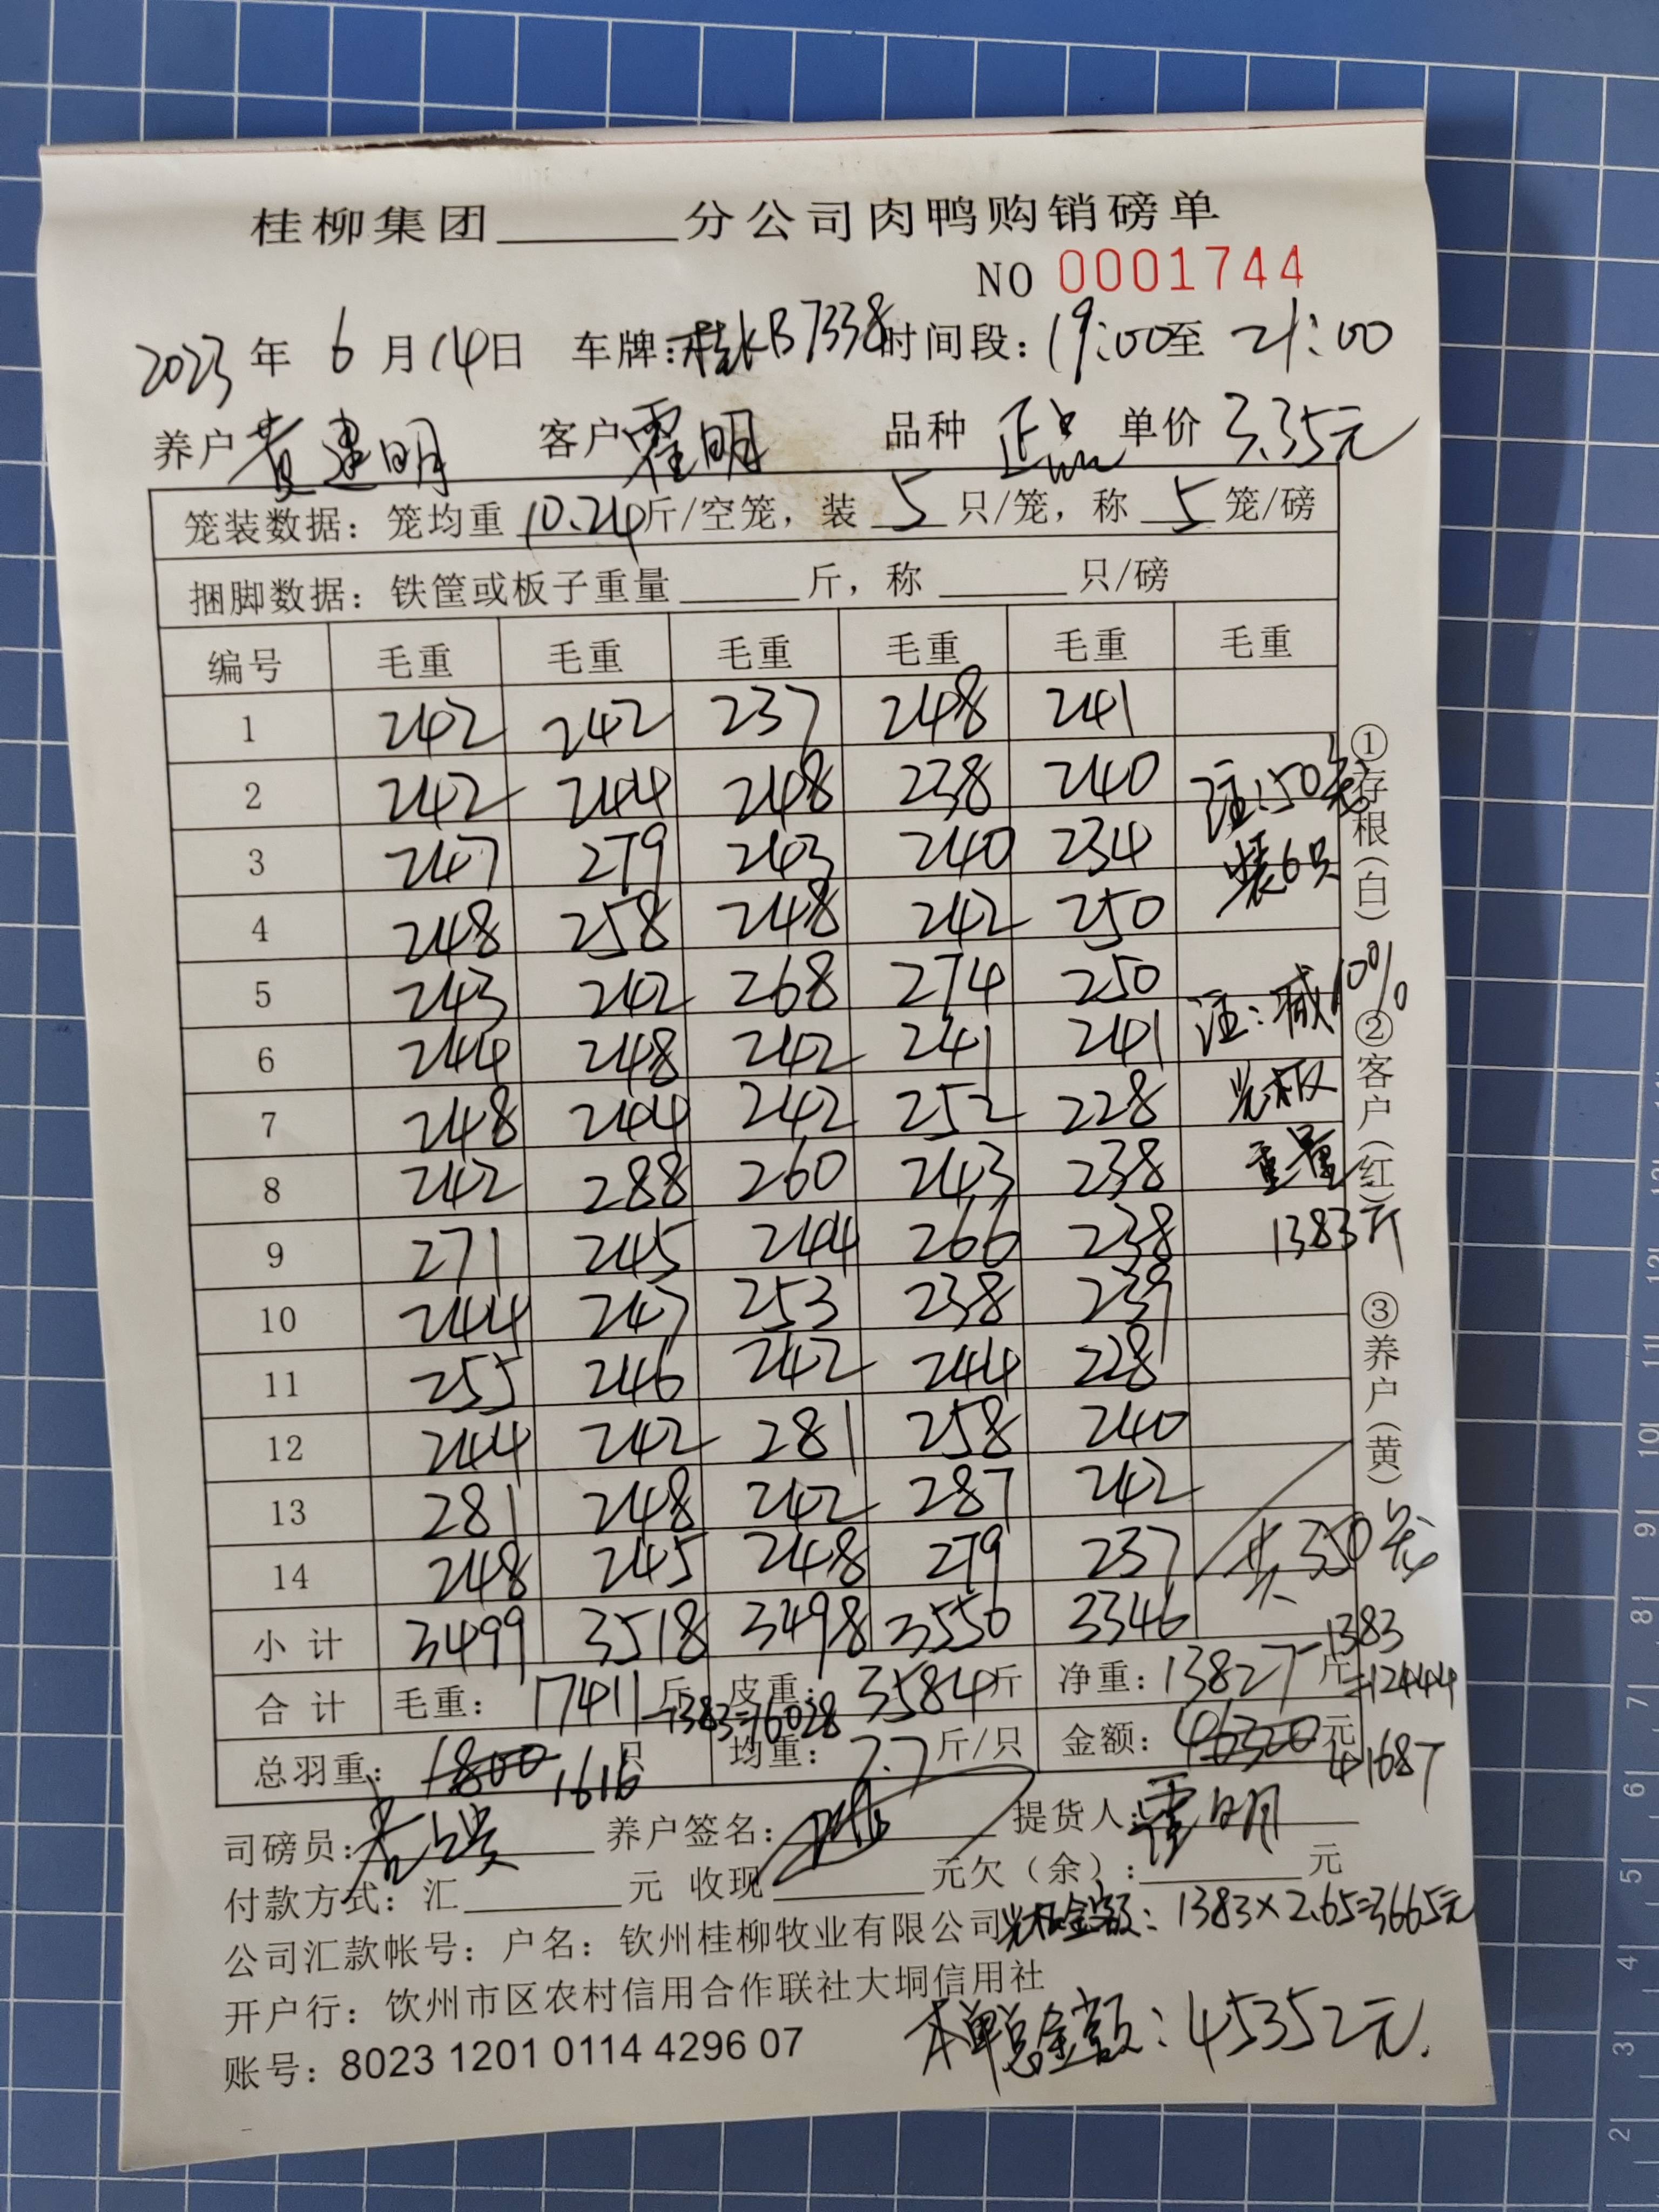 桂柳集团______分公司肉鸭购销磅单
NO 0001744
2023年 6月14日 车牌:桂KB7338 时间段:19:00至 21:00
养户 黄建明 客户 霍明 品种 正品 单价 3.35元
笼装数据:笼均重 10.24 斤/空笼,装 5 只/笼,称 5 笼/磅
捆脚数据:铁筐或板子重量______斤,称______只/磅
编号 毛重 毛重 毛重 毛重 毛重 毛重
1 242 242 237 248 241
2 242 244 248 238 240 注:50笼
3 247 279 243 240 234 装6只
4 248 258 248 242 250
5 243 242 268 274 250 注:减10%
6 244 248 242 241 241
7 248 244 242 252 228 光板
8 242 288 260 243 238 重量
9 271 245 244 266 238 1383斤
10 244 247 253 238 239
11 255 246 242 244 228
12 244 242 281 258 240
13 281 248 242 287 242
14 248 245 248 279 237 共350笼
小计 3499 3518 3498 3550 3346
合计 毛重: 17411斤-1383=16028 皮重: 3584斤 净重: 13827斤-1383=12444
总羽重: 1800 1616只 均重: 7.7斤/只 金额: 46320元 41687
司磅员: 养户签名: 提货人:霍明
付款方式:汇______元 收现______元欠(余):______元
公司汇款帐号:户名:钦州桂柳牧业有限公司 光板金额:1383×2.65=3665元
开户行:饮州市区农村信用合作联社大垌信用社
账号:8023 1201 0114 4296 07 本单总金额:45352元.
①存根(白) ②客户(红) ③养户(黄)